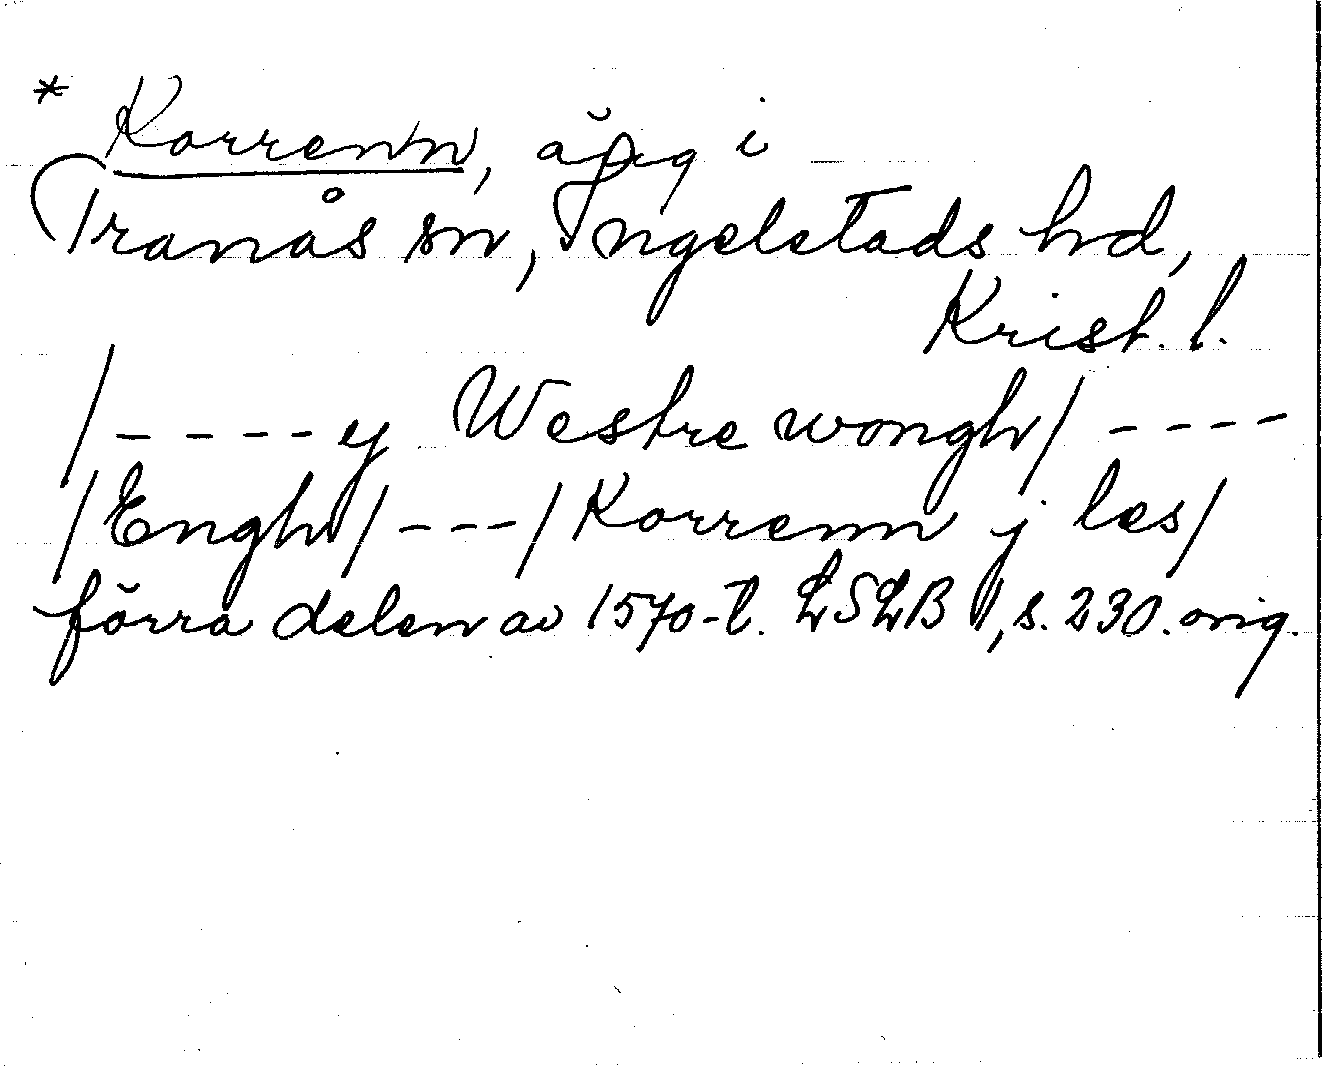 * Korrenn, äng i
Tranås sn, Ingelstads hd,
Krist. l.
/----y Westre wongh/ ----
/Engh/---/Korrenn j les/
förra delen av 1570-t. LSLB 1, s. 230. orig.